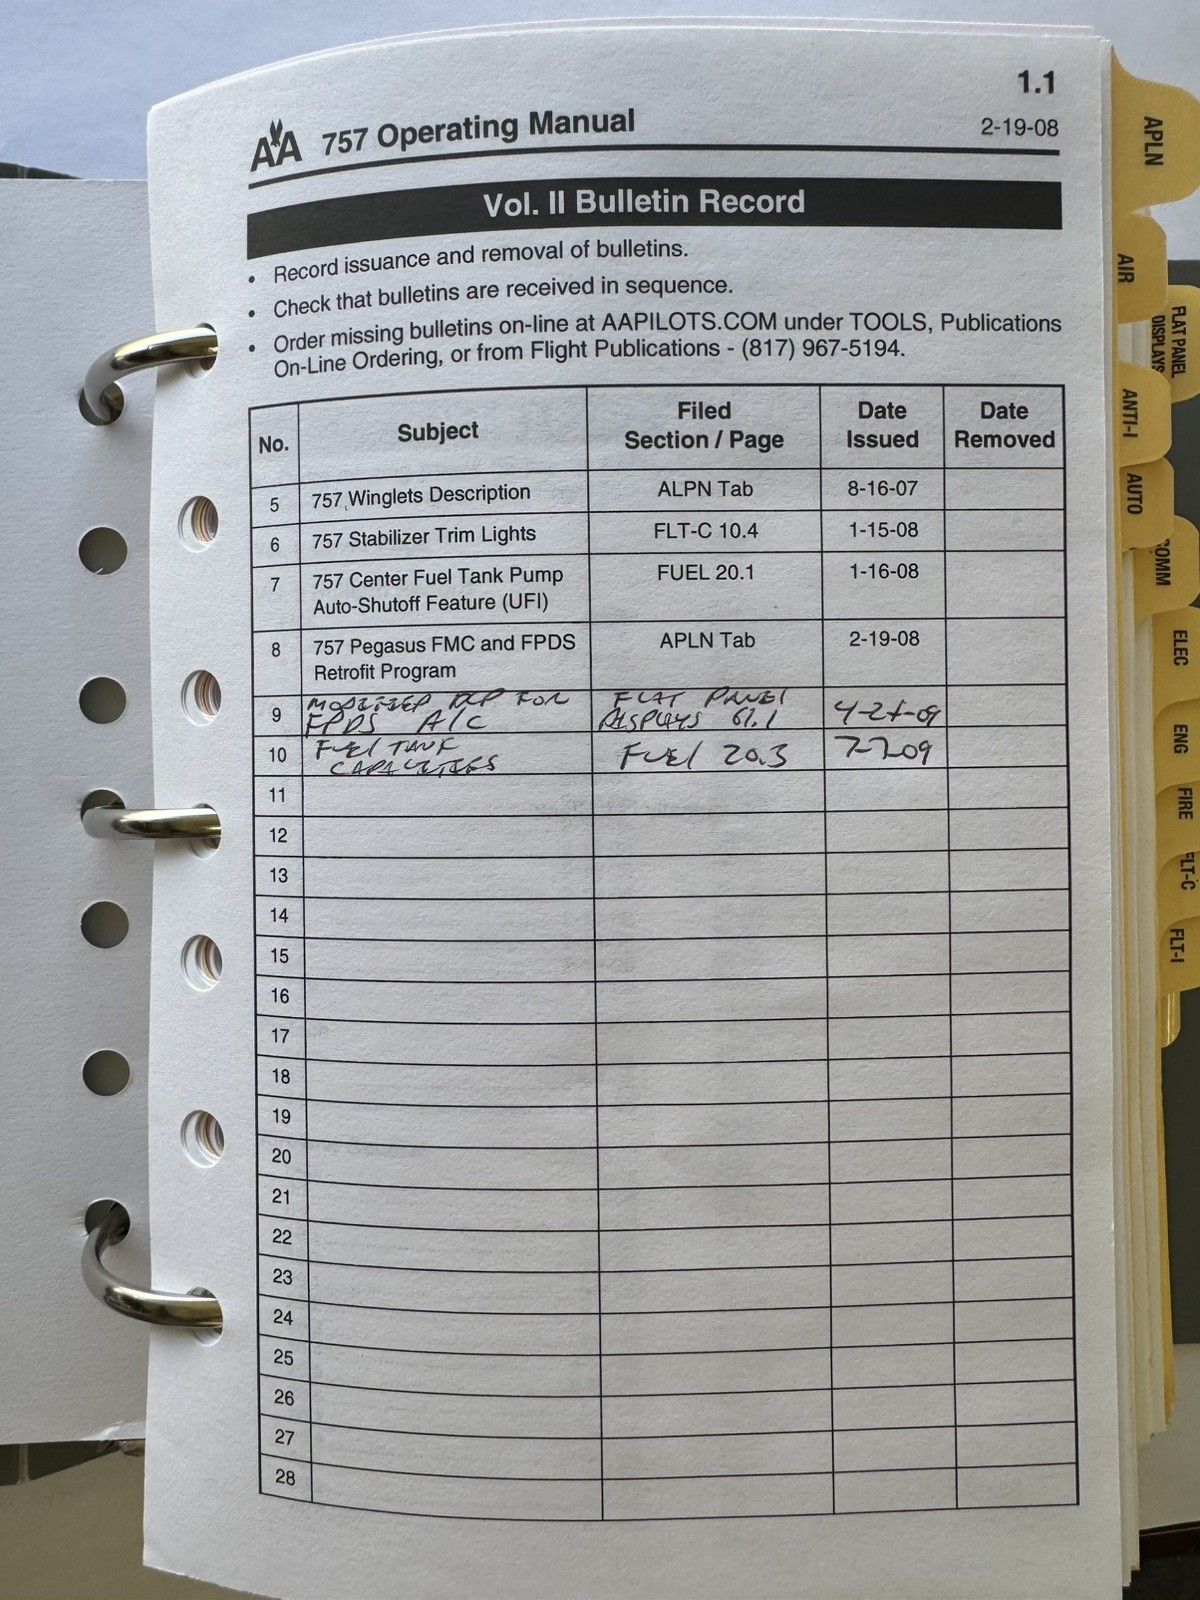 1.1
AA 757 Operating Manual
2-19-08
Vol. II Bulletin Record
• Record issuance and removal of bulletins.
• Check that bulletins are received in sequence.
• Order missing bulletins on-line at AAPILOTS.COM under TOOLS, Publications
On-Line Ordering, or from Flight Publications - (817) 967-5194.
No. Subject Filed Section / Page Date Issued Date Removed
5 757 Winglets Description ALPN Tab 8-16-07
6 757 Stabilizer Trim Lights FLT-C 10.4 1-15-08
7 757 Center Fuel Tank Pump FUEL 20.1 1-16-08
Auto-Shutoff Feature (UFI)
8 757 Pegasus FMC and FPDS APLN Tab 2-19-08
Retrofit Program
9 MODIFIED DCP FOR FLAT PANEL
FPDS A/C DISPLAYS 61.1
10 FUEL TANK FUEL 20.3 7-7-09
CAPACITIES
11
12
13
14
15
16
17
18
19
20
21
22
23
24
25
26
27
28
APLN
AIR
FLAT PANEL
DISPLAYS
ANTI-I
AUTO
COMM
ELEC
ENG
FIRE
FLT-C
FLT-I